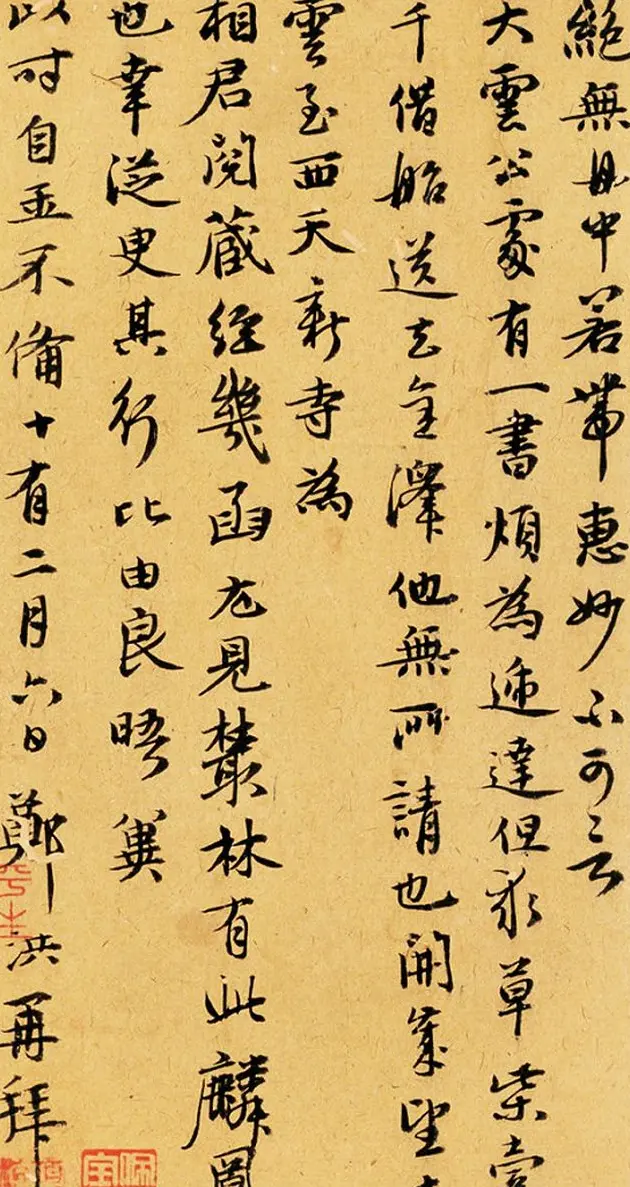 絕無具中若帶惠妙不可言
大雲公處有一書煩為遞達但求草柴壹
千借船送去至澤他無所請也開歲望
雲至西天新寺為
相君閱藏經幾函尤見叢林有此麟鳳
也幸從叟其行比由良晤冀
以時自玉不備十有二月六日鄭洪再拜